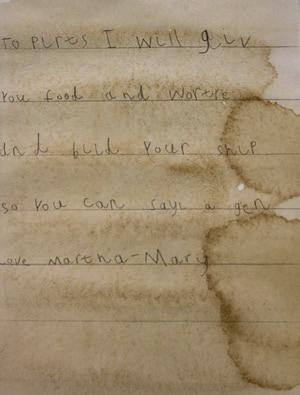 To pirts I will giv
you food and wortre
and bild your ship
so you can sayl a gen
Love Martha-Mary